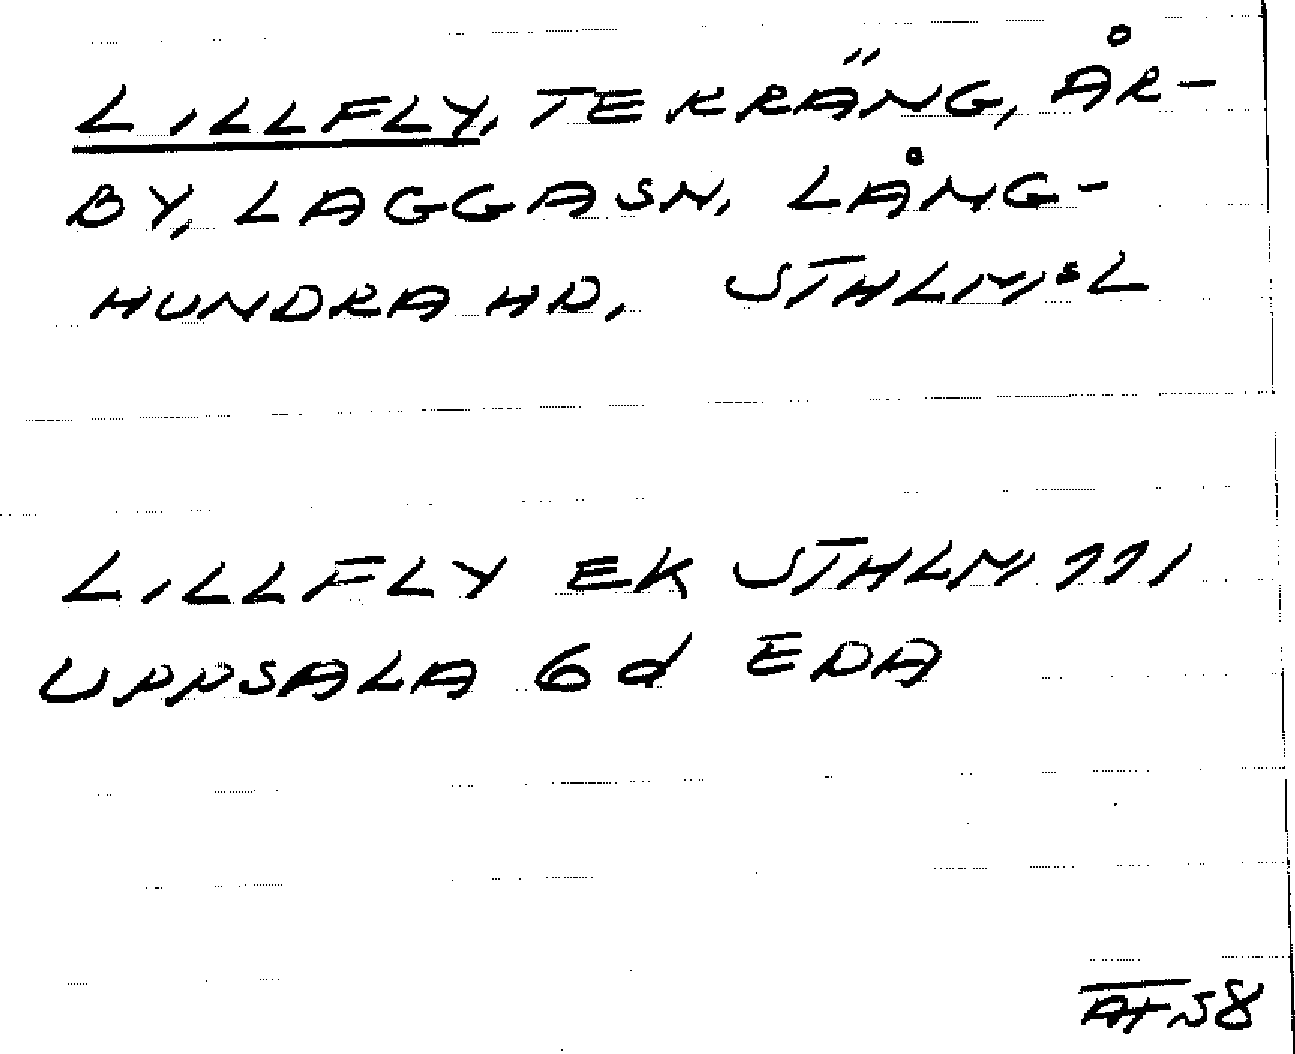 LILLFLY, TERRÄNG, ÅR-
BY, LAGGA SN, LÅNG-
HUNDRA HD, STHLM:S L
LILLFLY EK STHLM 111
UPPSALA 6d EDA